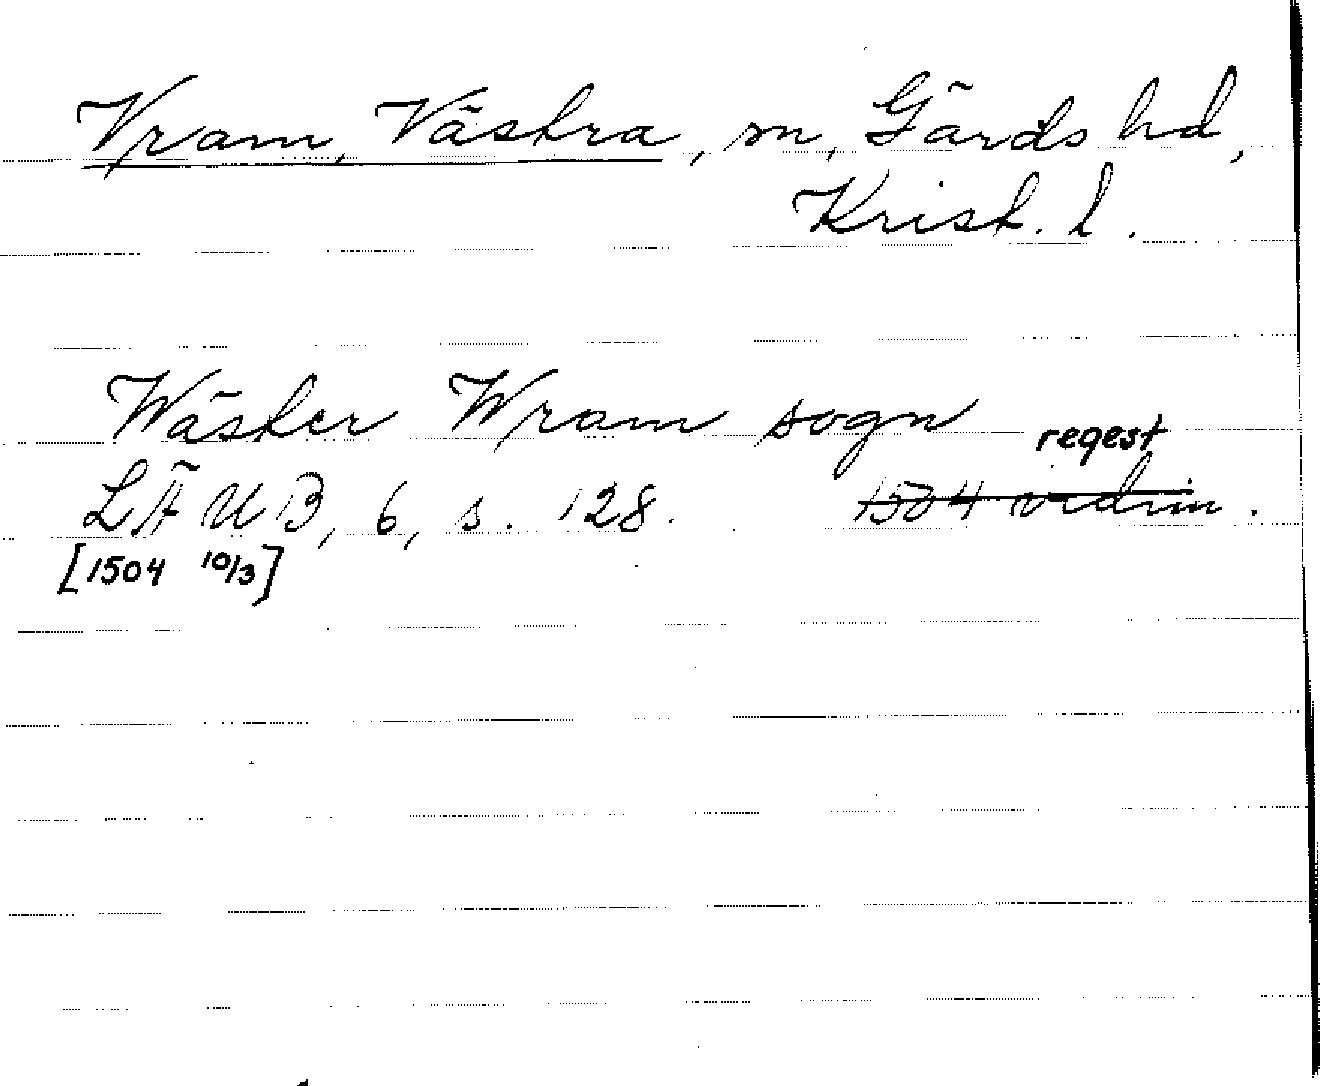 Vram, Västra, sn, Gärds hd,
Krist. l.
Wäster Wram sogn
regest
LÄUB, 6, s. 128. 1504 vidim.
[1504 10/3]